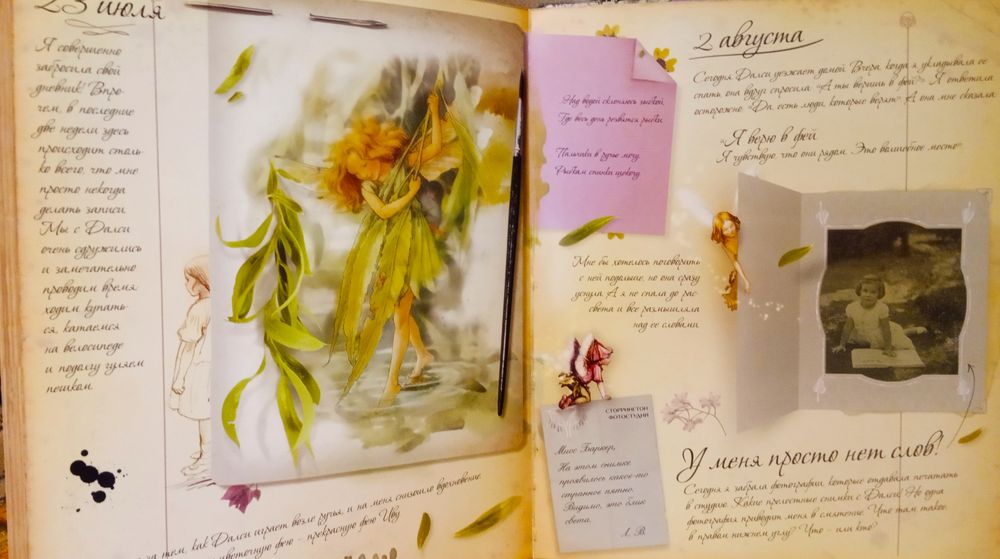 23 июля
Я совершенно
забросила свой
дневник! Впро-
чем, в последние
две недели здесь
происходит столь-
ко всего, что мне
просто некогда
делать записи.
Мы с Далси
очень сдружились
и замечательно
проводим время:
ходим купать-
ся, катаемся
на велосипеде
и подолгу гуляем
пешком.
за тем, как Далси играет возле ручья, и на меня снизошло вдохновение.
цветочную фею – прекрасную фею Иву
Над водой склонилась
Где весь день резвятся рыбки.
Пальчики в ручье мочу,
Рыбкам спинки щекочу.
Мне бы хотелось поговорить
с ней подольше, но она сразу
уснула. А я не спала до рас-
света и все размышляла
над ее словами.
СТОРРИНГТОН
ФОТОСТУДИЯ
Мисс Баркер,
На этом снимке
проявилось какое-то
странное пятно.
Видимо, это блик
света.
А. В.
2 августа
Сегодня Далси уезжает домой. Вчера, когда я укладывала ее
спать, она вдруг спросила: «А ты веришь в фей?» Я ответила
осторожно: «Да, есть люди, которые верят». А она мне сказала:
«Я верю в фей.
Я чувствую, что они рядом. Это волшебное место».
У меня просто нет слов!
Сегодня я забрала фотографии, которые отдавала печатать
в студию. Какие прелестные снимки с Далси! Но одна
фотография приводит меня в смятение. Что там такое
в правом нижнем углу? Что – или кто?